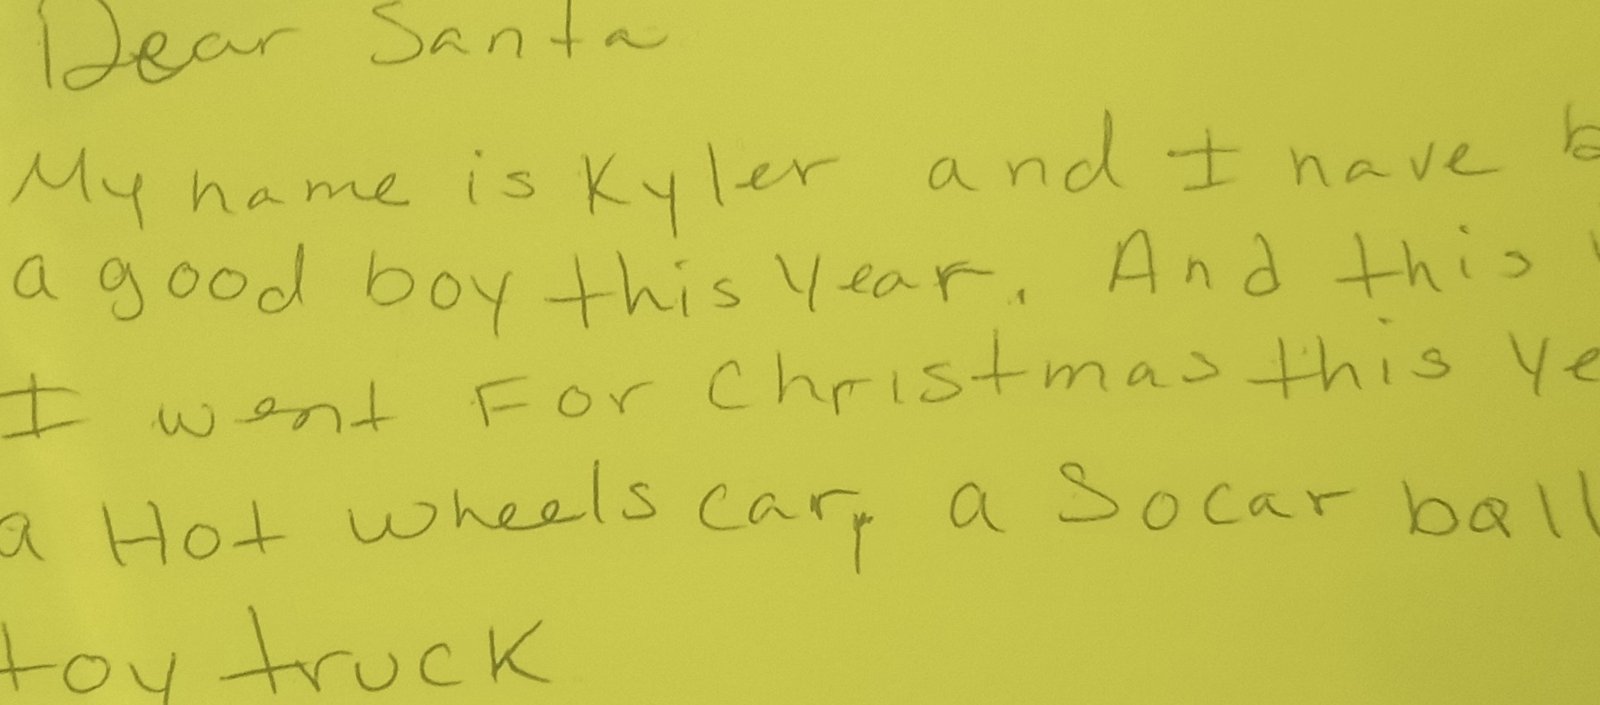 Dear Santa
My name is Kyler and I have
a good boy this year. And this
I want For Christmas this
a Hot wheels car, a Socar ball
toy truck